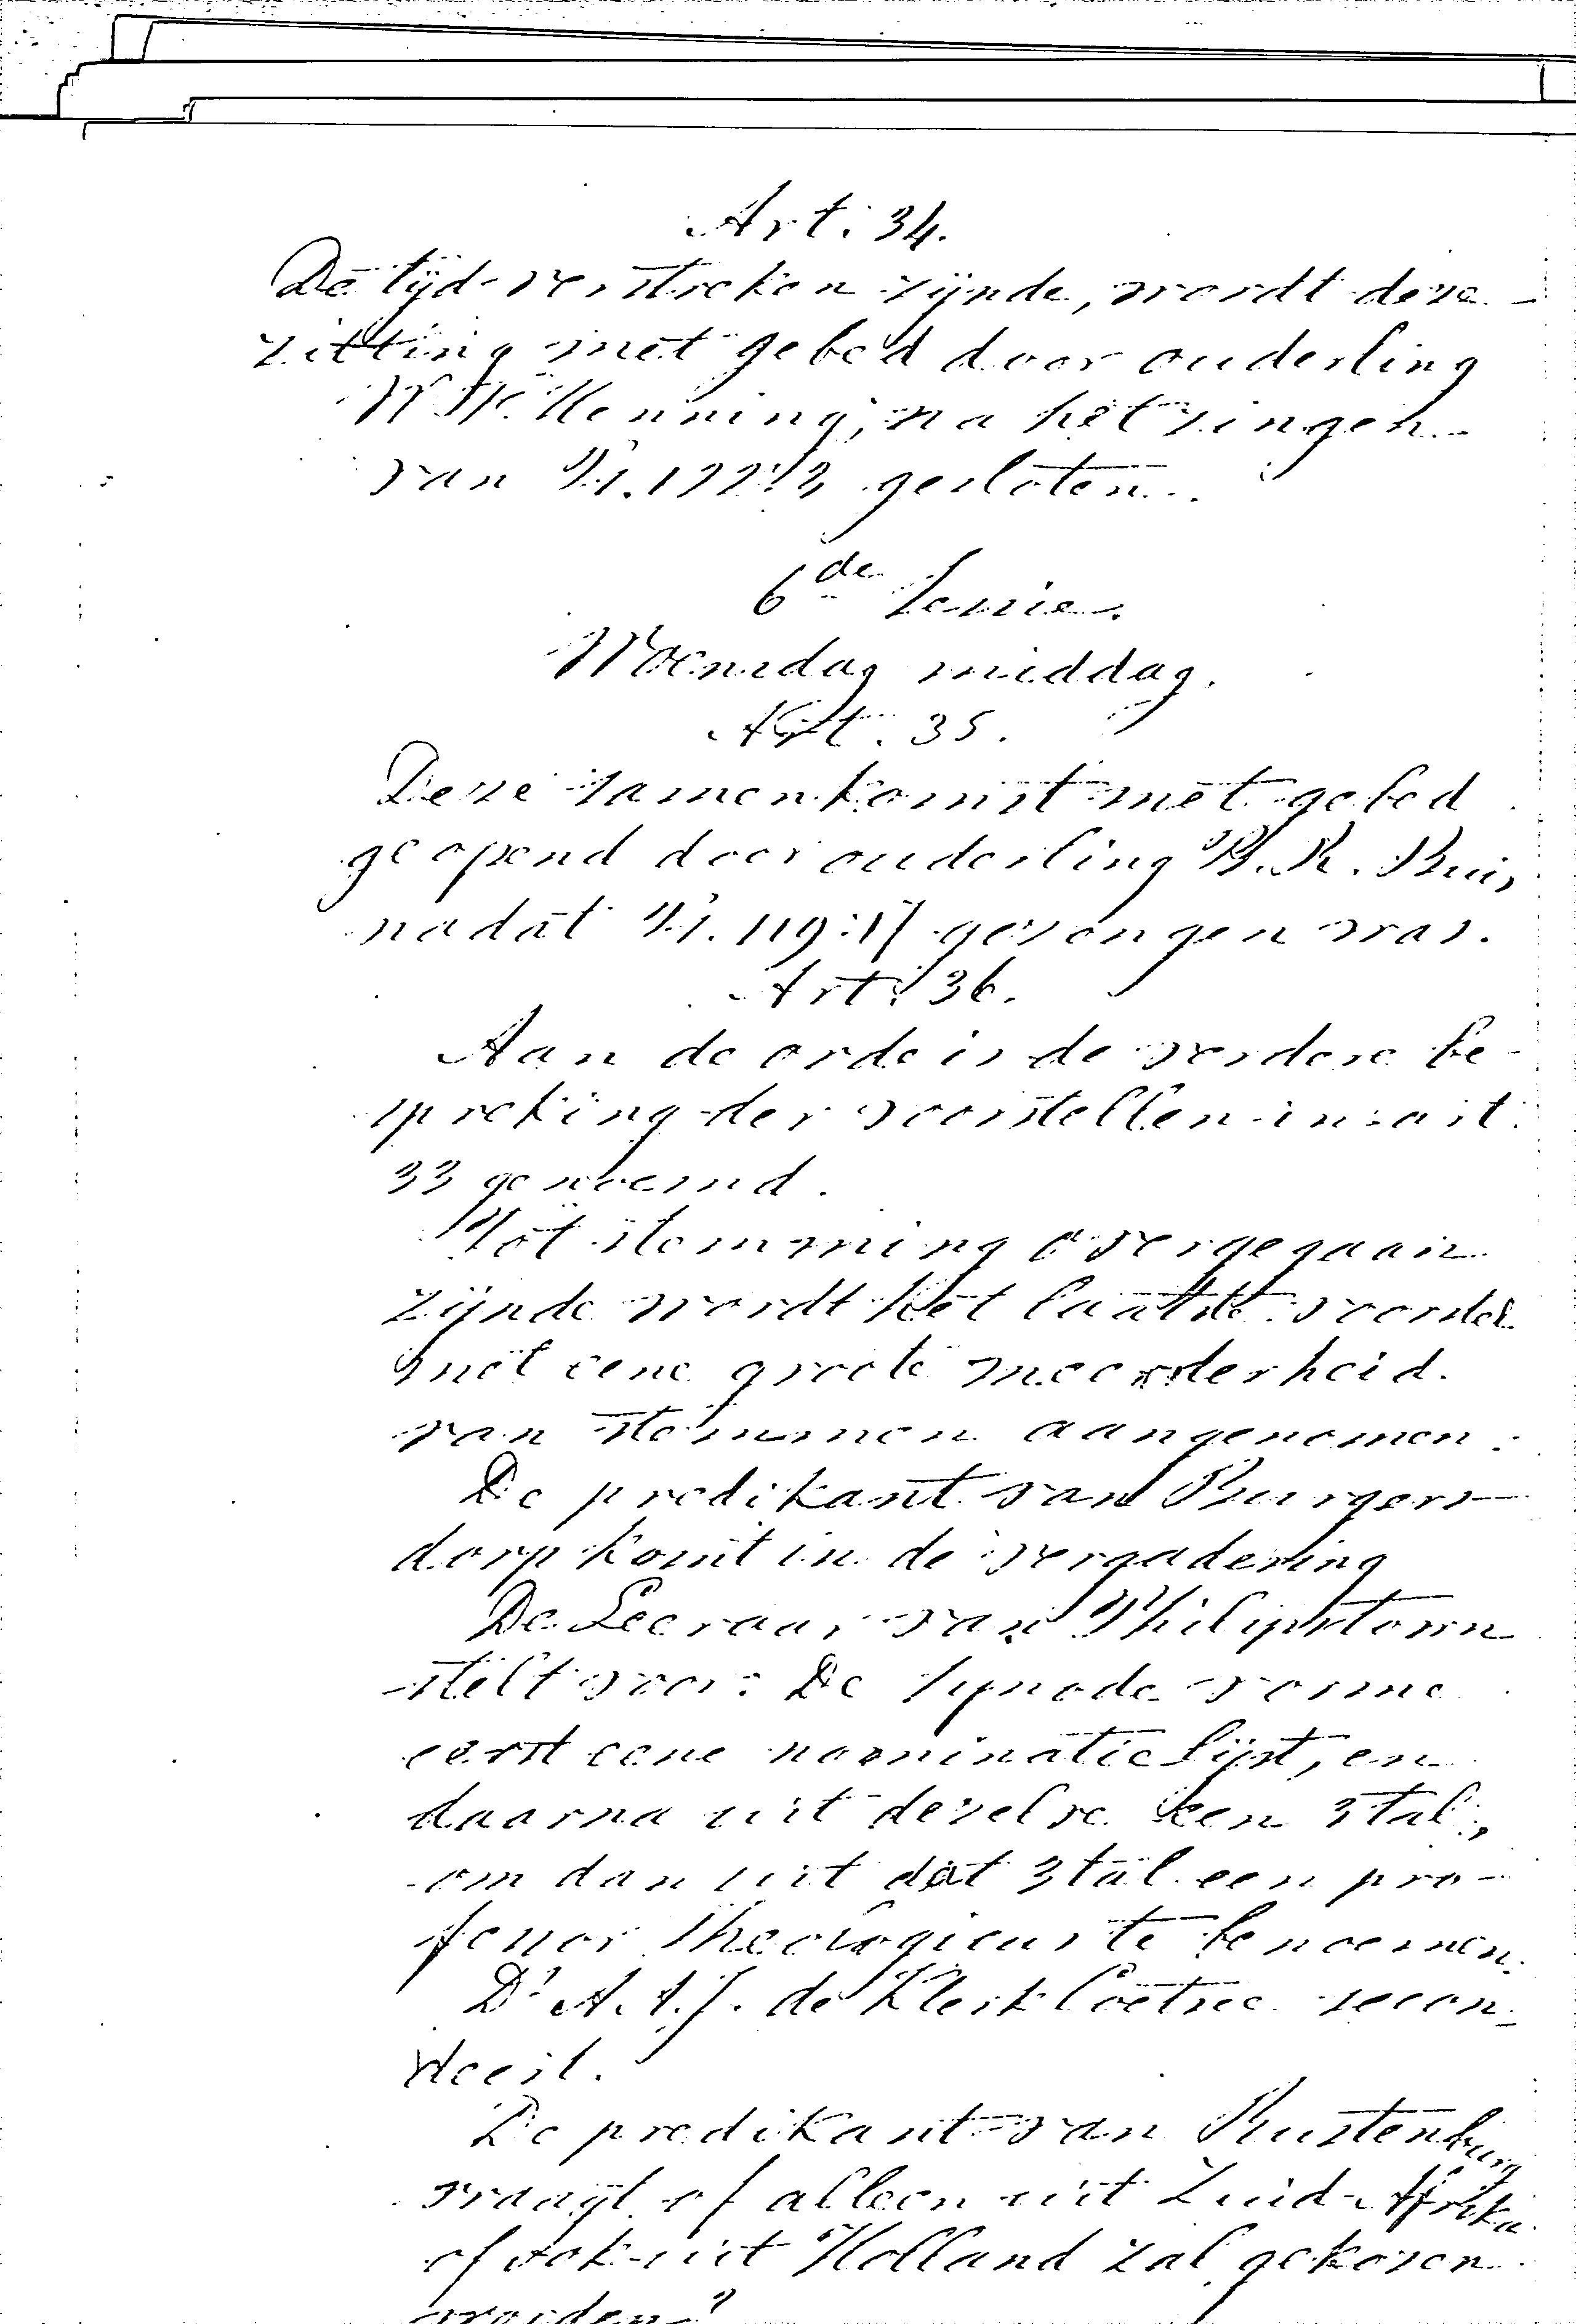 Art. 34.
De tijd verstreken zijnde, wordt deze
zitting met gebed door ouderling
W. Henning, na het zingen
van Ps. 122:3 gesloten.
6de Sessie.
Woensdag middag.
Art. 35.
Deze samenkomst met gebed
geopend door ouderling B. R. Buis
nadat Ps. 119:17 gezongen was.
Art. 36.
Aan de orde is de verdere be-
spreking der voorstellen in art.
33 genoemd.
Tot stemming overgegaan
zijnde wordt het laatste voorstel
met eene groote meerderheid
van stemmen aangenomen.
De predikant van Burgers-
dorp komt in de vergadering
De Leeraar van Philipstown
stelt voor: De Synode vorme
eerst eene nominatie lijst, en
daarna uit dezelve een 3tal,
om dan uit dat 3tal een pro-
fessor Theologicus te benoemen.
Ds A. A. J. de Klerk Coetzee secon-
deert.
De predikant van Rustenburg
vraagt of alleen uit Zuid-Afrika
of ook uit Holland zal gekozen
worden?